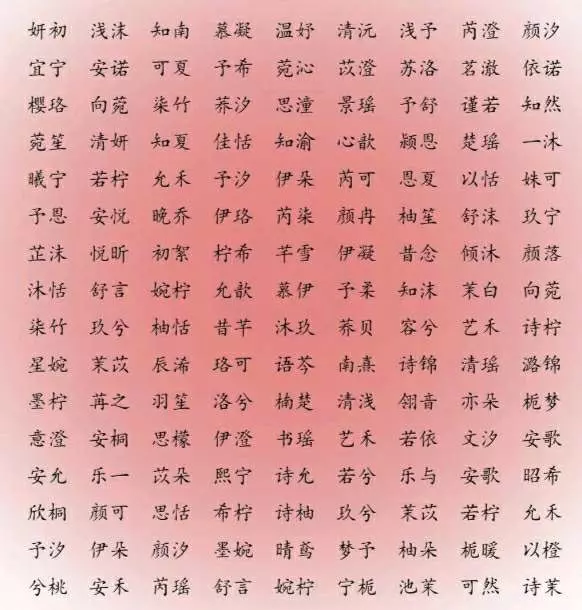 妍初 浅沫 知南 慕凝 温妤 清沅 浅予 芮澄 颜汐
宜宁 安诺 可夏 予希 菀沁 苡澄 苏洛 茗澈 依诺
樱珞 向菀 柒竹 荞汐 思潼 景瑶 予舒 谨若 知然
菀笙 清妍 知夏 佳恬 知渝 心歆 颍恩 楚瑶 一沐
曦宁 若柠 允禾 予汐 伊朵 芮可 恩夏 以恬 姝可
予恩 安悦 晚乔 伊珞 芮柒 颜冉 柚笙 舒沫 玖宁
芷沫 悦昕 初絮 柠希 芊雪 伊凝 昔念 倾沐 颜落
沐恬 舒言 婉柠 允歆 慕伊 予柔 知沫 茉白 向菀
柒竹 玖兮 柚恬 昔芊 沐玖 荞贝 容兮 艺禾 诗柠
星婉 茉苡 辰浠 珞可 语芩 南熹 诗锦 清瑶 潞锦
墨柠 苒之 羽笙 洛兮 楠楚 清浅 翎音 亦朵 栀梦
意澄 安桐 思檬 伊澄 书瑶 艺禾 若依 文汐 安歌
安允 乐一 苡朵 熙宁 诗允 若兮 乐与 安歌 昭希
欣桐 颜可 思恬 希柠 诗柚 玖兮 茉苡 若柠 允禾
予汐 伊朵 颜汐 墨婉 晴鸢 梦予 柚朵 栀暖 以橙
兮桃 安禾 芮瑶 舒言 婉柠 宁栀 池茉 可然 诗茉